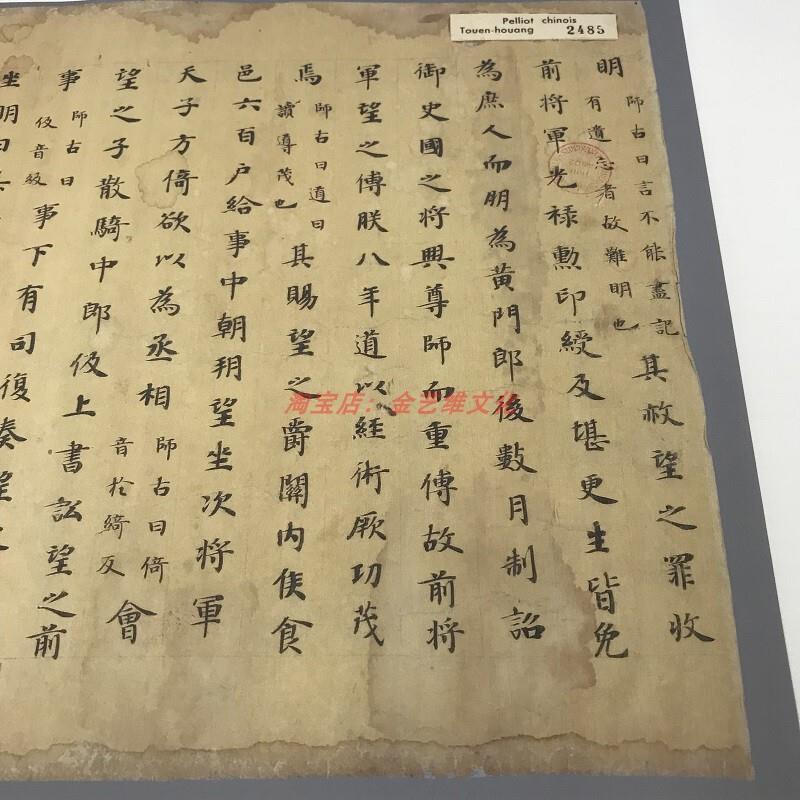 Pelliot chinois
Touen-houang 2485
明
師古曰言不能盡記
有遺忘者故難明也
其赦望之罪收
前將軍光祿勳印綬及堪更生皆免
為庶人而朋為黃門郎後數月制詔
御史國之將興尊師而重傅故前將
軍望之傅朕八年道以經術厥功茂
焉
師古曰道曰
讀導茂也
其賜望之爵關內侯食
邑六百戶給事中朝朔望坐次將軍
天子方倚欲以為丞相
師古曰倚
音於綺反
會
望之子散騎中郎伋上書訟望之前
事
師古曰
伋音級
事下有司復奏望之
坐明白
淘宝店：金艺维文化